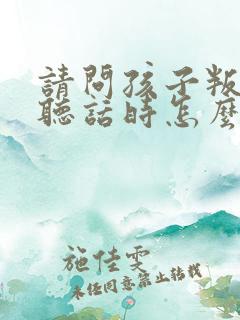 請問孩子叛
聽話時怎麼
施佳雯
未經同意禁止轉載